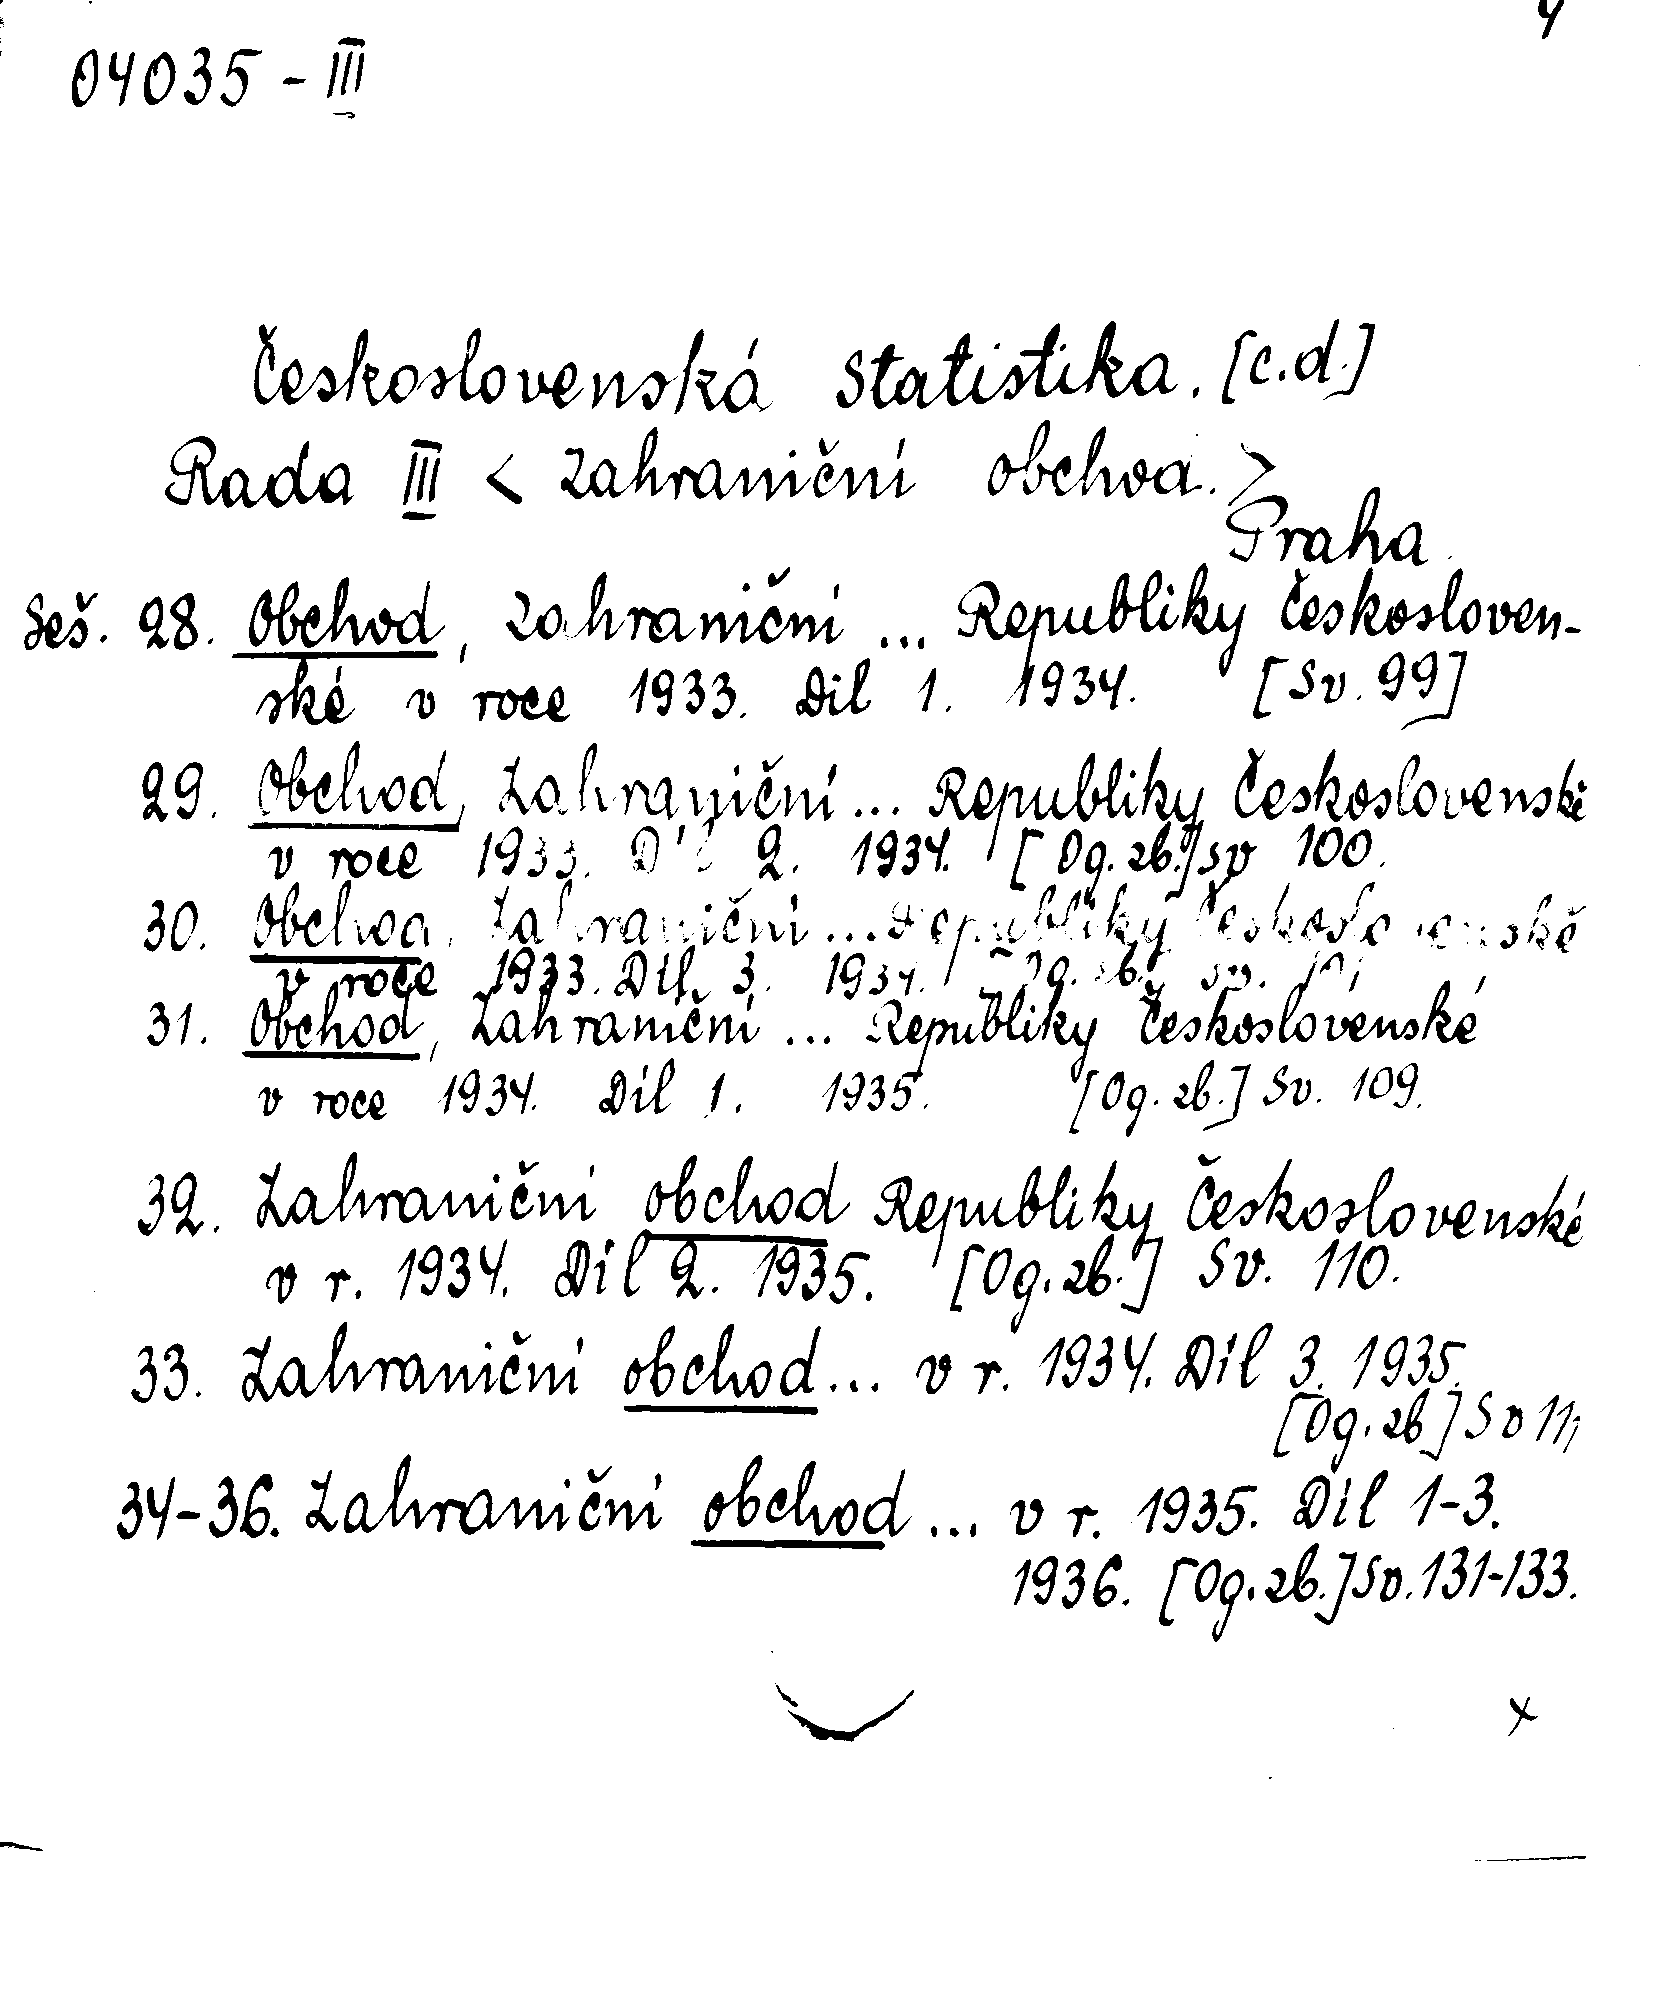 4
04035 - III
Československá Statistika. [c.d.]
Rada III < Zahraniční obchod. >
Praha
Seš. 28. Obchod, Zahraniční ... Republiky Českosloven-
ské v roce 1933. Díl 1. 1934. [Sv. 99]
29. Obchod, Zahraniční ... Republiky Československé
v roce 1933. Díl 2. 1934. [Og. zb.] Sv 100.
30. Obchod, Zahraniční ... Republiky Československé
v roce 1933. Díl 3. 1934. Og. zb. Sv.
31. Obchod, Zahraniční ... Republiky Československé
v roce 1934. Díl 1. 1935. [Og. zb.] Sv. 109.
32. Zahraniční obchod Republiky Československé
v r. 1934. Díl 2. 1935. [Og. zb.] Sv. 110.
33. Zahraniční obchod ... v r. 1934. Díl 3. 1935.
[Og. zb] Sv 111
34-36. Zahraniční obchod ... v r. 1935. Díl 1-3.
1936. [Og. zb.] Sv. 131-133.
x